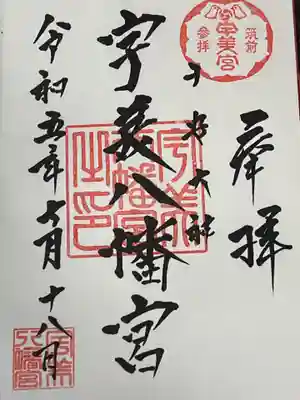 奉拝
筑前
宇美宮
參拜
宇美八幡宮
宇美八幡宮之印
令和五年七月十八日
宇美八幡宮